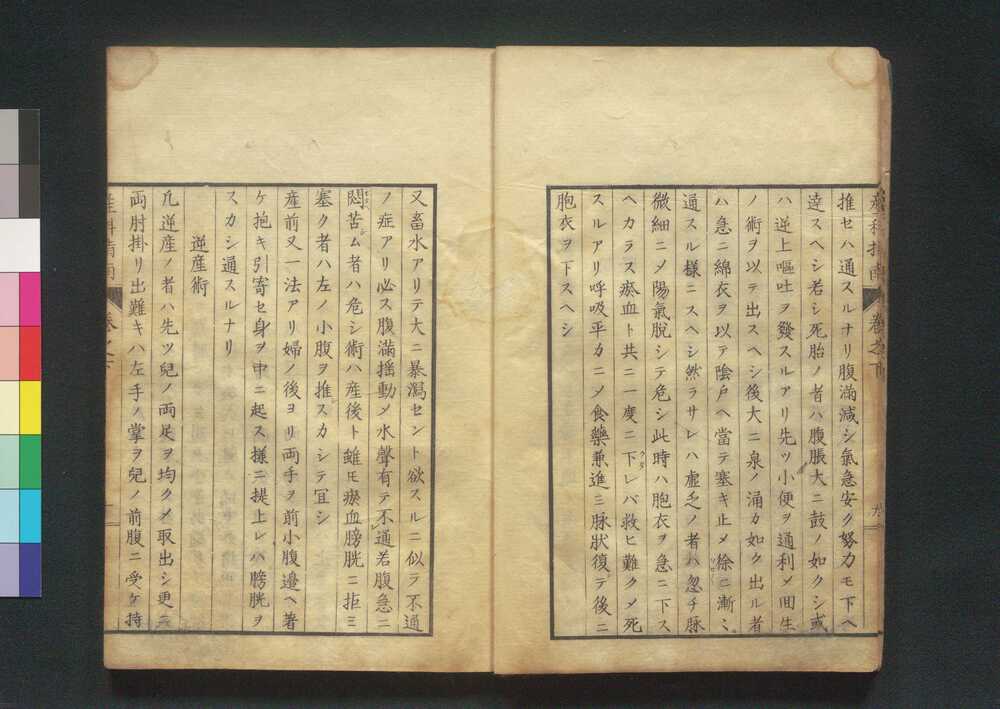 推セハ通スルナリ腹滿減シ氣急安ク努力モ下ヘ
達スヘシ若シ死胎ノ者ハ腹脹大ニ鼓ノ如クシ或
ハ逆上嘔吐ヲ發スルアリ先ツ小便ヲ通利メ回生
ノ術ヲ以テ出スヘシ後大ニ泉ノ涌カ如ク出ル者
ハ急ニ綿衣ヲ以テ陰戸ヘ當テ塞キ止メ徐ニ漸〻
通スル樣ニスヘシ然ラサレハ虚乏ノ者ハ忽チ脉
微細ニメ陽氣脱シテ危シ此時ハ胞衣ヲ急ニ下ス
ヘカラス瘀血ト共ニ一度ニ下レバ救ヒ難クメ死
スルアリ呼吸平カニメ食藥兼進ミ脉狀復テ後ニ
胞衣ヲ下スヘシ
又畜水アリテ大ニ暴瀉セント欲スルニ似テ不通
ノ症アリ必ス腹滿揺動メ水聲有テ不通若腹急ニ
悶苦ム者ハ危シ術ハ産後ト雖モ瘀血膀胱ニ拒ミ
塞ク者ハ左ノ小腹ヲ推スカシテ冝シ
産前又一法アリ婦ノ後ヨリ両手ヲ前小腹邉ヘ著
ケ抱キ引寄セ身ヲ中ニ起ス樣ニ提上レハ膀胱ヲ
スカシ通スルナリ
逆産術
凢逆産ノ者ハ先ツ兒ノ両足ヲ均クメ取出シ更ニ
両肘掛リ出難キハ左手ノ掌ヲ兒ノ前腹ニ受ケ持